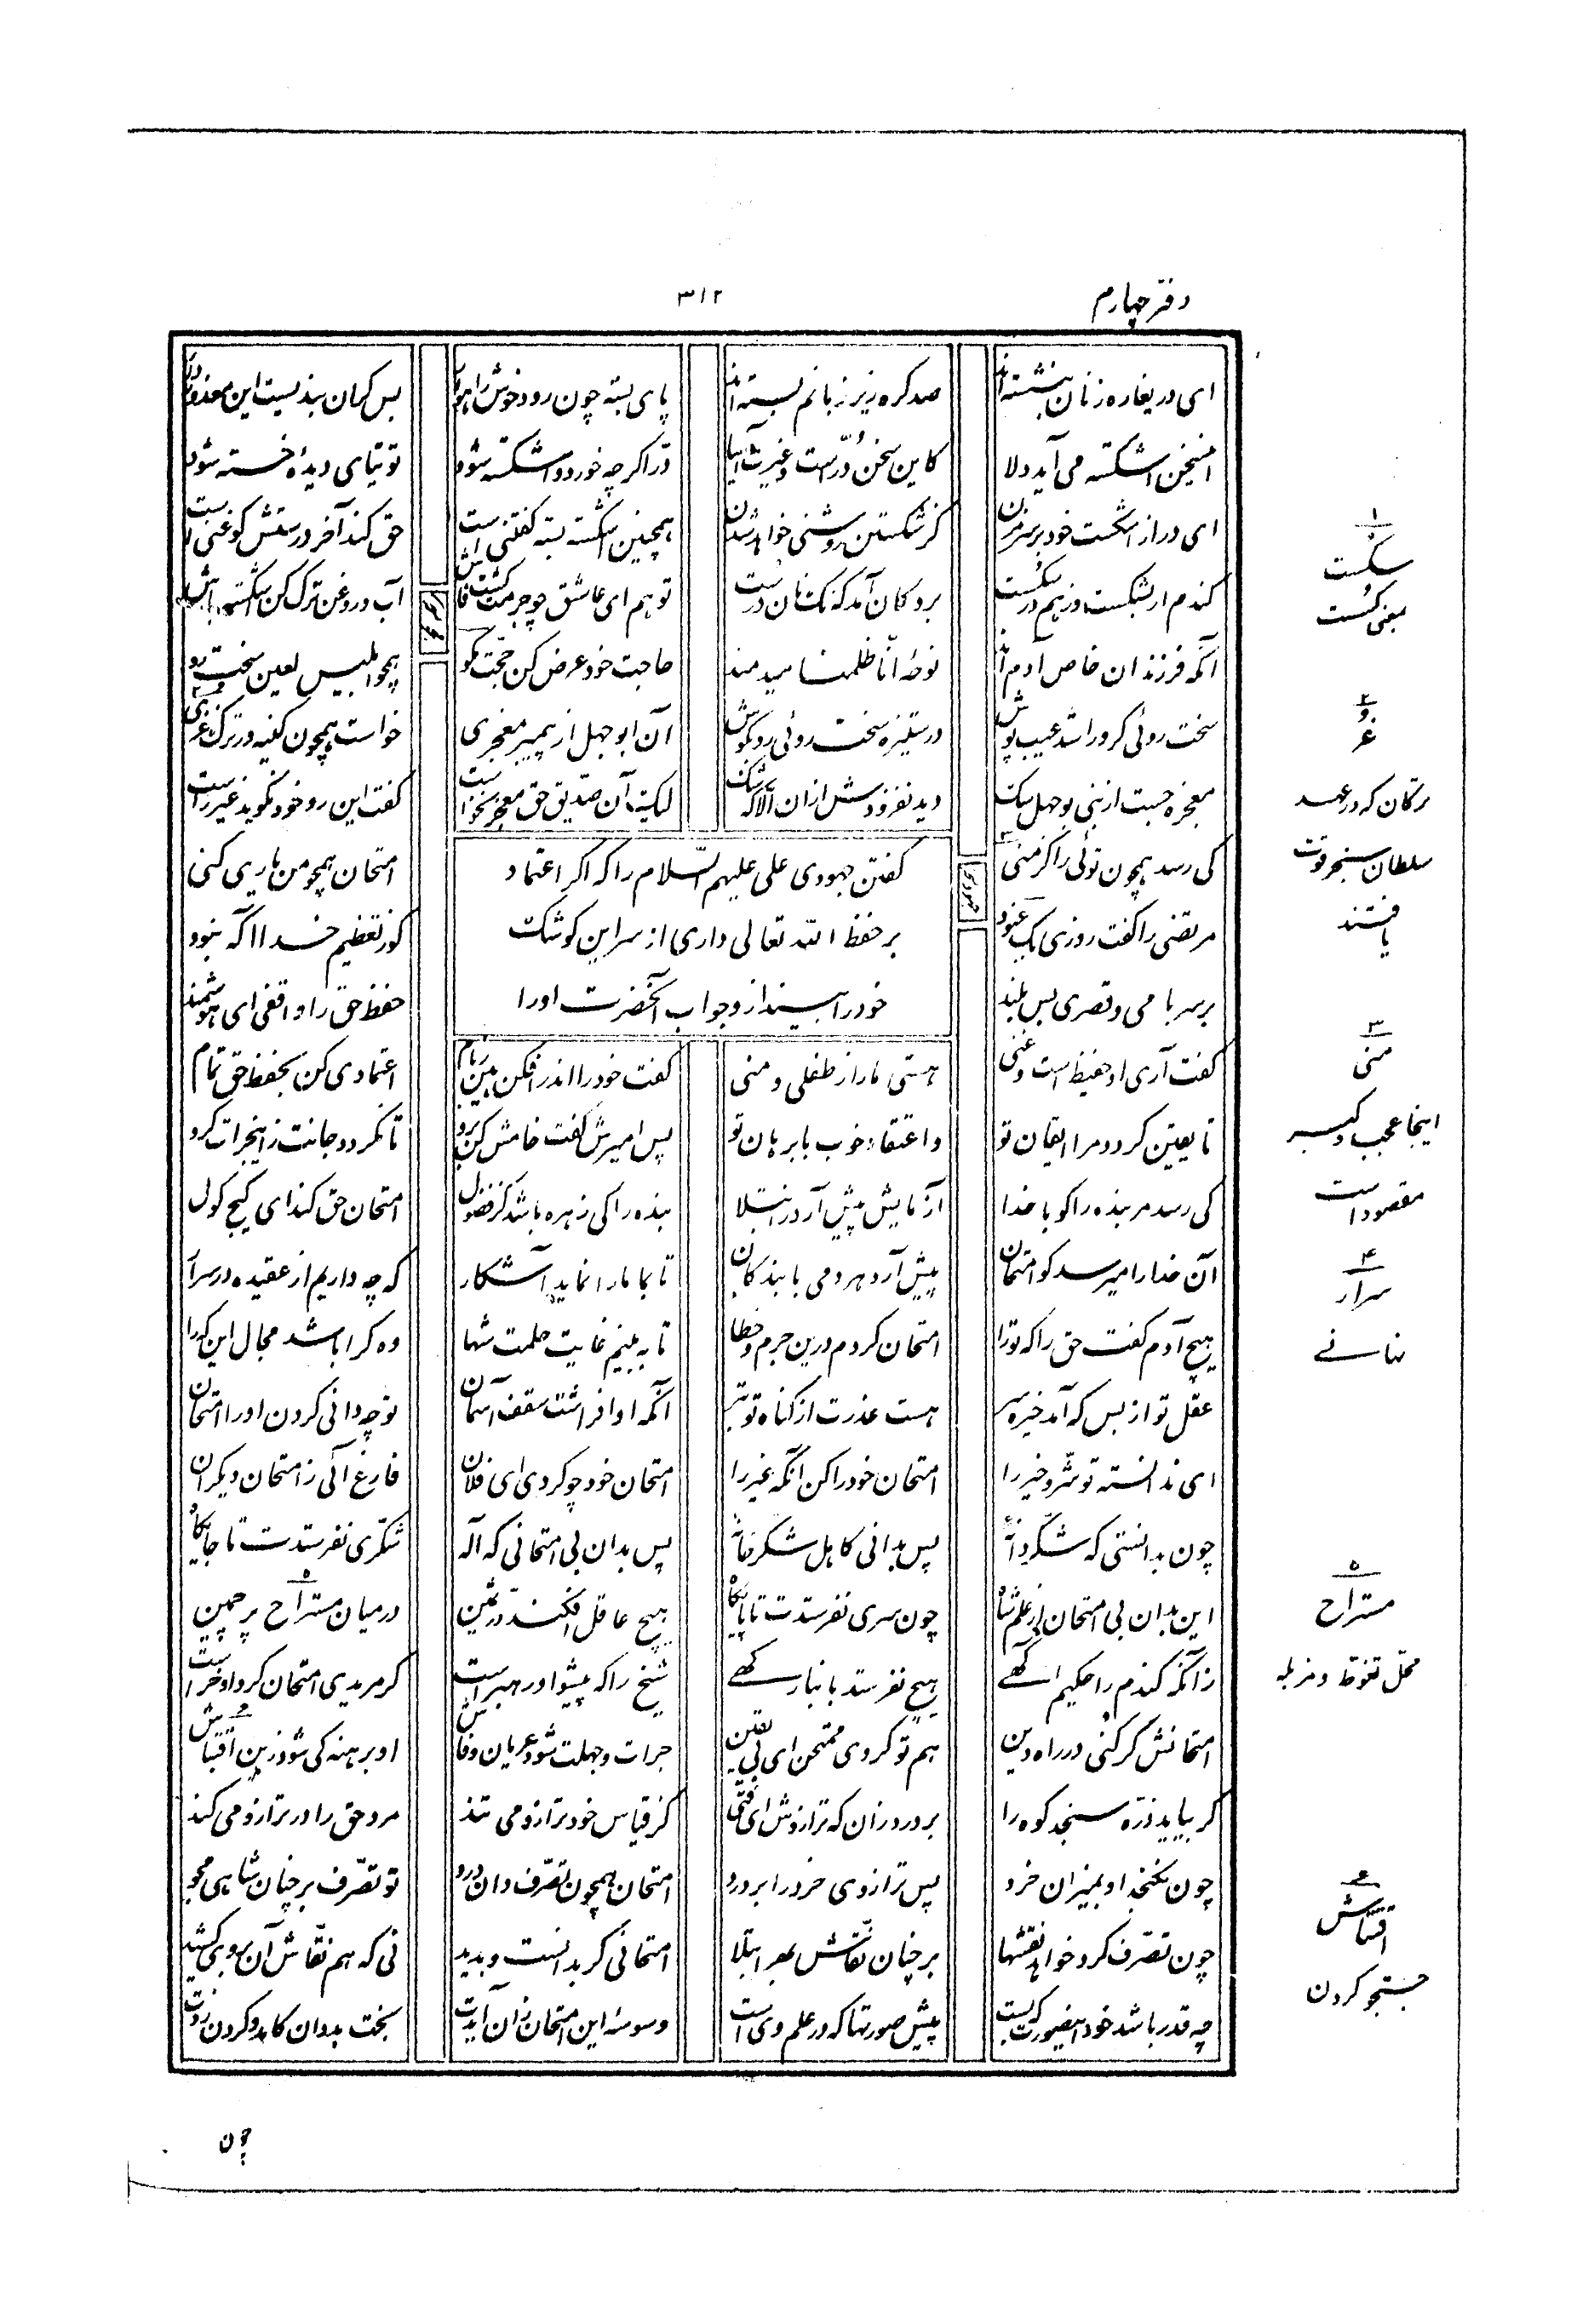 دفتر چهارم
۳۱۲
ای دریغا رهزنان بنشسته‌اند صد گره زیر زبانم بسته‌اند پای بسته چون رود خوش راهوار بس گران بندیست این معذور دار
این سخن اشکسته می‌آید دلا کاین سخن دُرّ است و غیرت آسیا دُرّ اگر چه خورد و اشکسته شود توتیای دیدهٔ خسته شود
ای در از اشکست خود بر سر مزن کز شکستن روشنی خواهد شدن همچنین اشکسته بسته گفتنی است حق کند آخر درستش کو غنی است
گندم ار بشکست وز هم در سُکُست بر دکان آمد که نک نان درست تو هم ای عاشق چو جرمت گشت فاش آب و روغن ترک کن اشکسته باش
آنکه فرزندان خاص آدم‌اند نوحهٔ انّا ظلمنا میدمند حاجت خود عرض کن حجّت مگو همچو ابلیس لعین سخت رو
سخت روئی گر ورا شد عیب پوش در ستیزه سخت روئی رو بکوش آن ابوجهل از پیمبر معجزی خواست همچون کینه‌ور ترک غزی
معجزه جست از نبی بوجهل سگ دید نفزودش از آن الّا که شک لیک آن صدّیق حق معجز نخواست گفت این رو خود نگوید غیر راست
کی رسد همچون توئی را کز منی امتحان همچو من یاری کنی
گفتن جهودی علی علیهم السّلام را که اگر اعتماد
بر حفظ الله تعالی داری از سر این کوشک
خود را بینداز و جواب آنحضرت او را
مرتضی را گفت روزی یک عنود کو ز تعظیم خدا آگه نبود
بر سر بامی و قصری بس بلند حفظ حق را واقفی ای هوشمند
گفت آری او حفیظ است و غنی هستی ما را ز طفلی و منی گفت خود را اندر افکن هین ز بام اعتمادی کن بحفظ حق تمام
تا یقین گردد مرا ایقان تو و اعتقاد خوب با برهان تو پس امیرش گفت خامش کن برو تا نگردد جانت زین جرات گرو
کی رسد مر بنده را کو با خدا آزمایش پیش آرد ز ابتلا بنده را کی زهره باشد کز فضول امتحان حق کند ای گیج گول
آن خدا را میرسد کو امتحان پیش آرد هر دمی با بندگان تا بما ما را نماید آشکار که چه داریم از عقیده در سرار
هیچ آدم گفت حق را که ترا امتحان کردم درین جرم و خطا تا ببینم غایت حلمت شها وه کرا باشد مجال این کرا
عقل تو از بس که آمد خیره سر هست عذرت از گناه تو بتر آنکه او افراشت سقف آسمان تو چه دانی کردن او را امتحان
ای ندانسته تو شرّ و خیر را امتحان خود را کن آنگه غیر را امتحان خود چو کردی ای فلان فارغ آئی ز امتحان دیگران
چون بدانستی که شکّر دانه‌ پس بدانی کاهل شکر خانه‌ پس بدان بی امتحانی که اله شکّری نفرستدت تا جایگاه
این بدان بی امتحان از علم شاه چون سری نفرستدت تا پایگاه هیچ عاقل افکند درّ ثمین در میان مستراح پر چمین
زآنکه گندم را حکیم آگهی هیچ نفرستد بانبار کهی شیخ را که پیشوا و رهبر است گر مریدی امتحان کرد او خر است
امتحانش گر کنی در راه دین هم تو گردی ممتحن ای بی یقین جرات و جهلت شود عریان و فاش او برهنه کی شود زین افتتاش
گر بیاید ذرّه سنجد کوه را بر درد زان که ترازوش ای فتی کز قیاس خود ترازو می تند مرد حق را در ترازو می کند
چون نگنجد او بمیزان خرد پس ترازوی خرد را بر درد امتحان همچون تصرّف دان درو تو تصرّف بر چنان شاهی مجو
چون تصرّف کرد خواهد نقشها بر چنان نقّاش بهر ابتلا امتحانی گر بدانست و بدید نی که هم نقّاش آن بر وی کشید
چه قدر باشد خود این صورت که بست پیش صورتها که در علم وی است وسوسهٔ این امتحان زان آیدت بخت بد دان کامد و گردن زدت
۱
سکست
بمعنی گسست
۲
غز
ترکان که در عهد
سلطان سنجر قوت
یافتند
۳
منی
اینجا عجب و کبر
مقصود است
۴
سرار
نهانی
۵
مستراح
محل تغوّط و مزبله
۶
افتتاش
جستجو کردن
چون